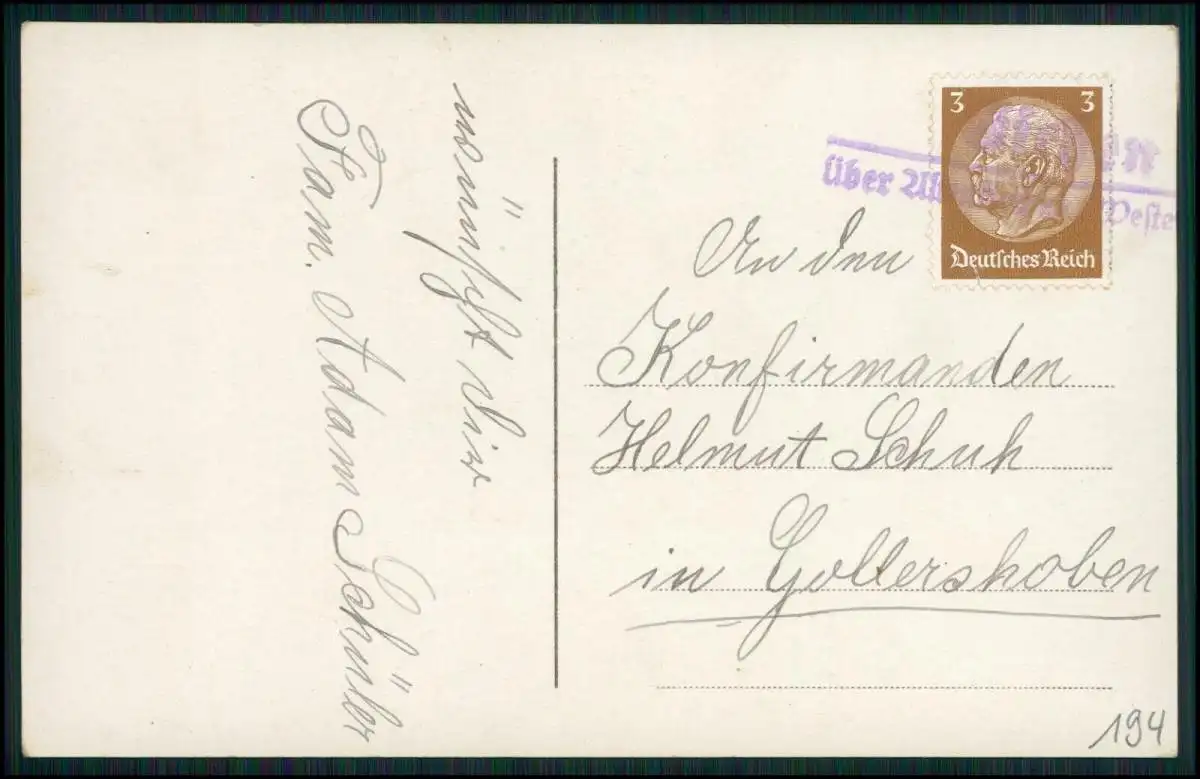 wünscht Dir
Fam. Adam Schüler
3 3
Deutsches Reich
über
An den
Konfirmanden
Helmut Schuh
in Gollershoben
194